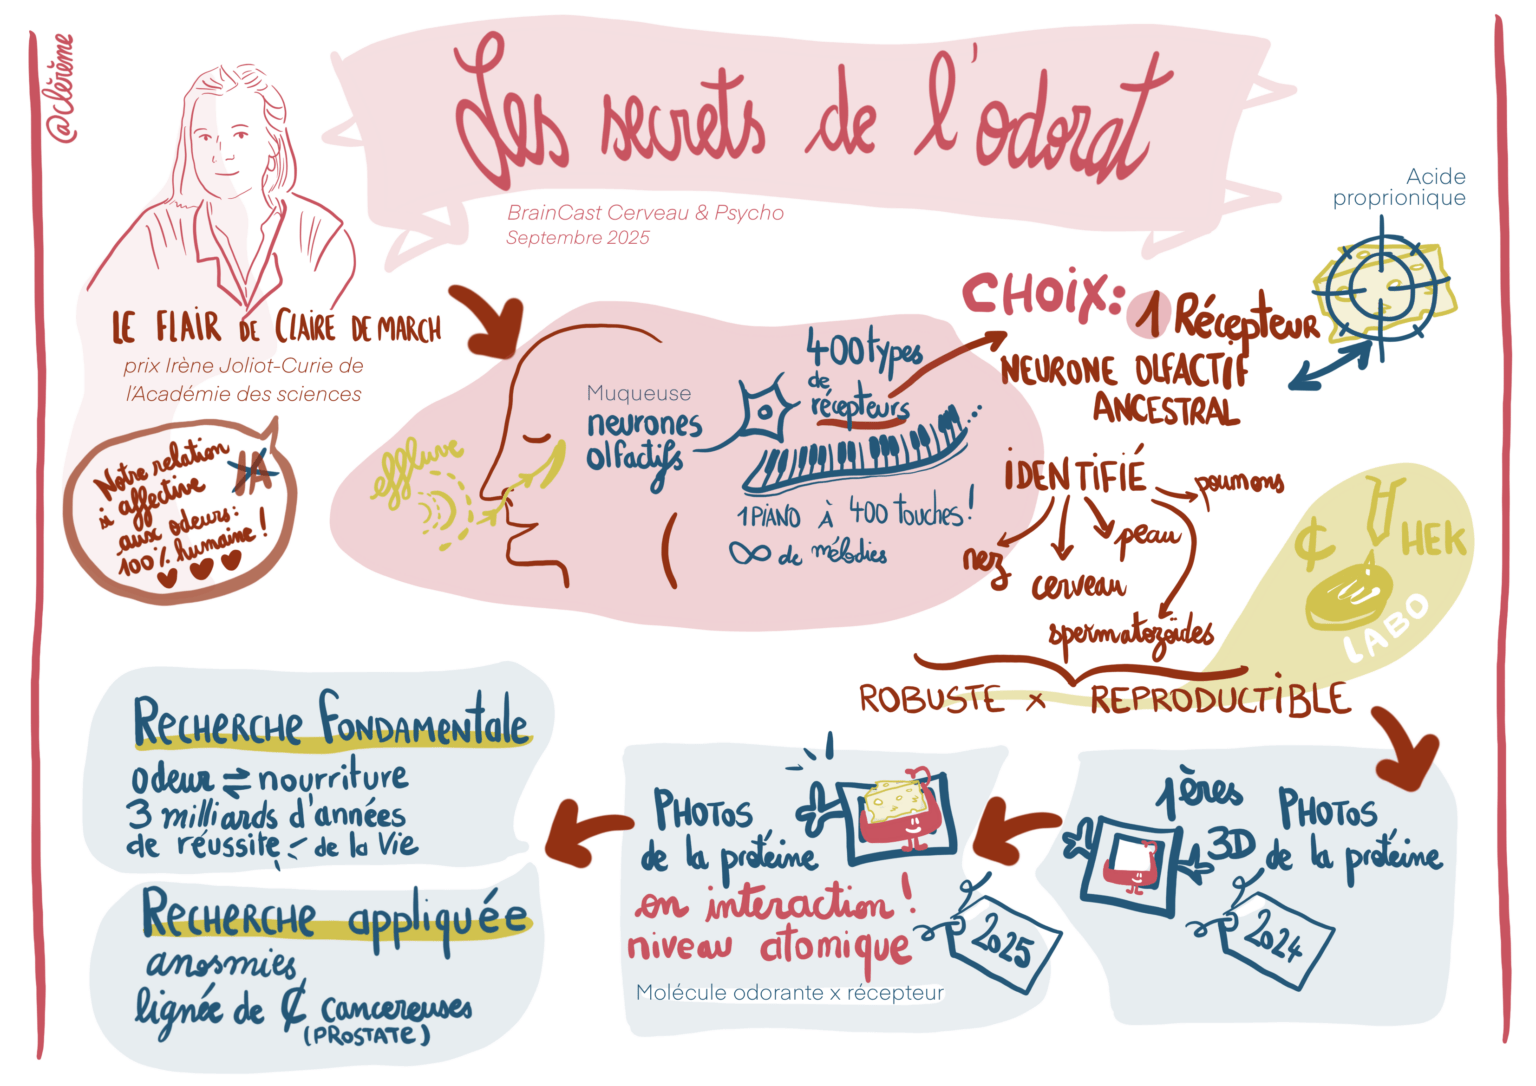 @clérème
Les secrets de l'odorat
BrainCast Cerveau & Psycho
Septembre 2025
LE FLAIR DE CLAIRE DE MARCH
prix Irène Joliot-Curie de
l'Académie des sciences
Notre relation
si affective
aux odeurs:
100% humaine !
IA
effluve
Muqueuse
neurones
olfactifs
400 types
de
récepteurs
1 PIANO À 400 touches!
∞ de mélodies
CHOIX: 1 Récepteur
NEURONE OLFACTIF
ANCESTRAL
Acide
proprionique
iDENTiFIÉ
poumons
peau
nez
cerveau
spermatozoïdes
₵ HEK
LABO
ROBUSTE x REPRODUCTiBLE
1ères PHOTOS
3D de la protéine
2024
PHOTOS
de la protéine
en interaction!
niveau atomique
2025
Molécule odorante x récepteur
RECHERCHE FONDAMENTale
odeur ⇌ nourriture
3 milliards d'années
de réussite de la Vie
RECHERCHE appliquée
anosmies
lignée de ₵ cancereuses
(PROSTATE)